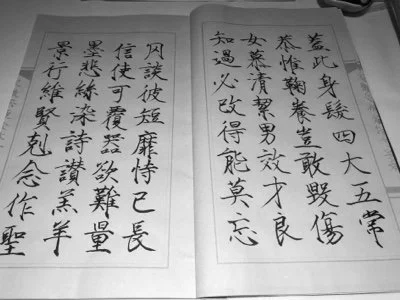 蓋此身髮四大五常
恭惟鞠養豈敢毀傷
女慕清絜男效才良
知過必改得能莫忘
罔談彼短靡恃己長
信使可覆器欲難量
墨悲絲染詩讚羔羊
景行維賢剋念作聖